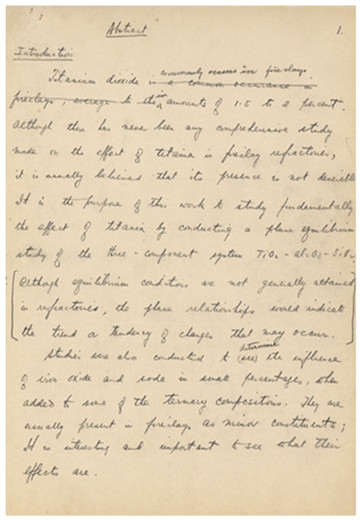 Abstract
1.
Introduction
commonly occurs in fireclays
Titanium dioxide is a common occurance in
fireclays, average to the in amounts of 1.5 to 2 percent.
Although there has never been any comprehensive study
made on the effect of titania in fireclay refractories,
it is usually believed that its presence is not desirable.
It is the purpose of this work to study fundamentally
the effect of titania by conducting a phase equilibrium
study of the three-component system TiO2-Al2O3-SiO2.
[Although equilibrium conditions are not generally attained
in refractories, the phase relationships would indicate
the trend or tendency of changes that may occur.]
determine
Studies are also conducted to (see) the influence
of iron oxide and soda in small percentages, when
added to some of the ternary compositions. They are
usually present in fireclays as minor constituents;
It is interesting and important to see what their
effects are.